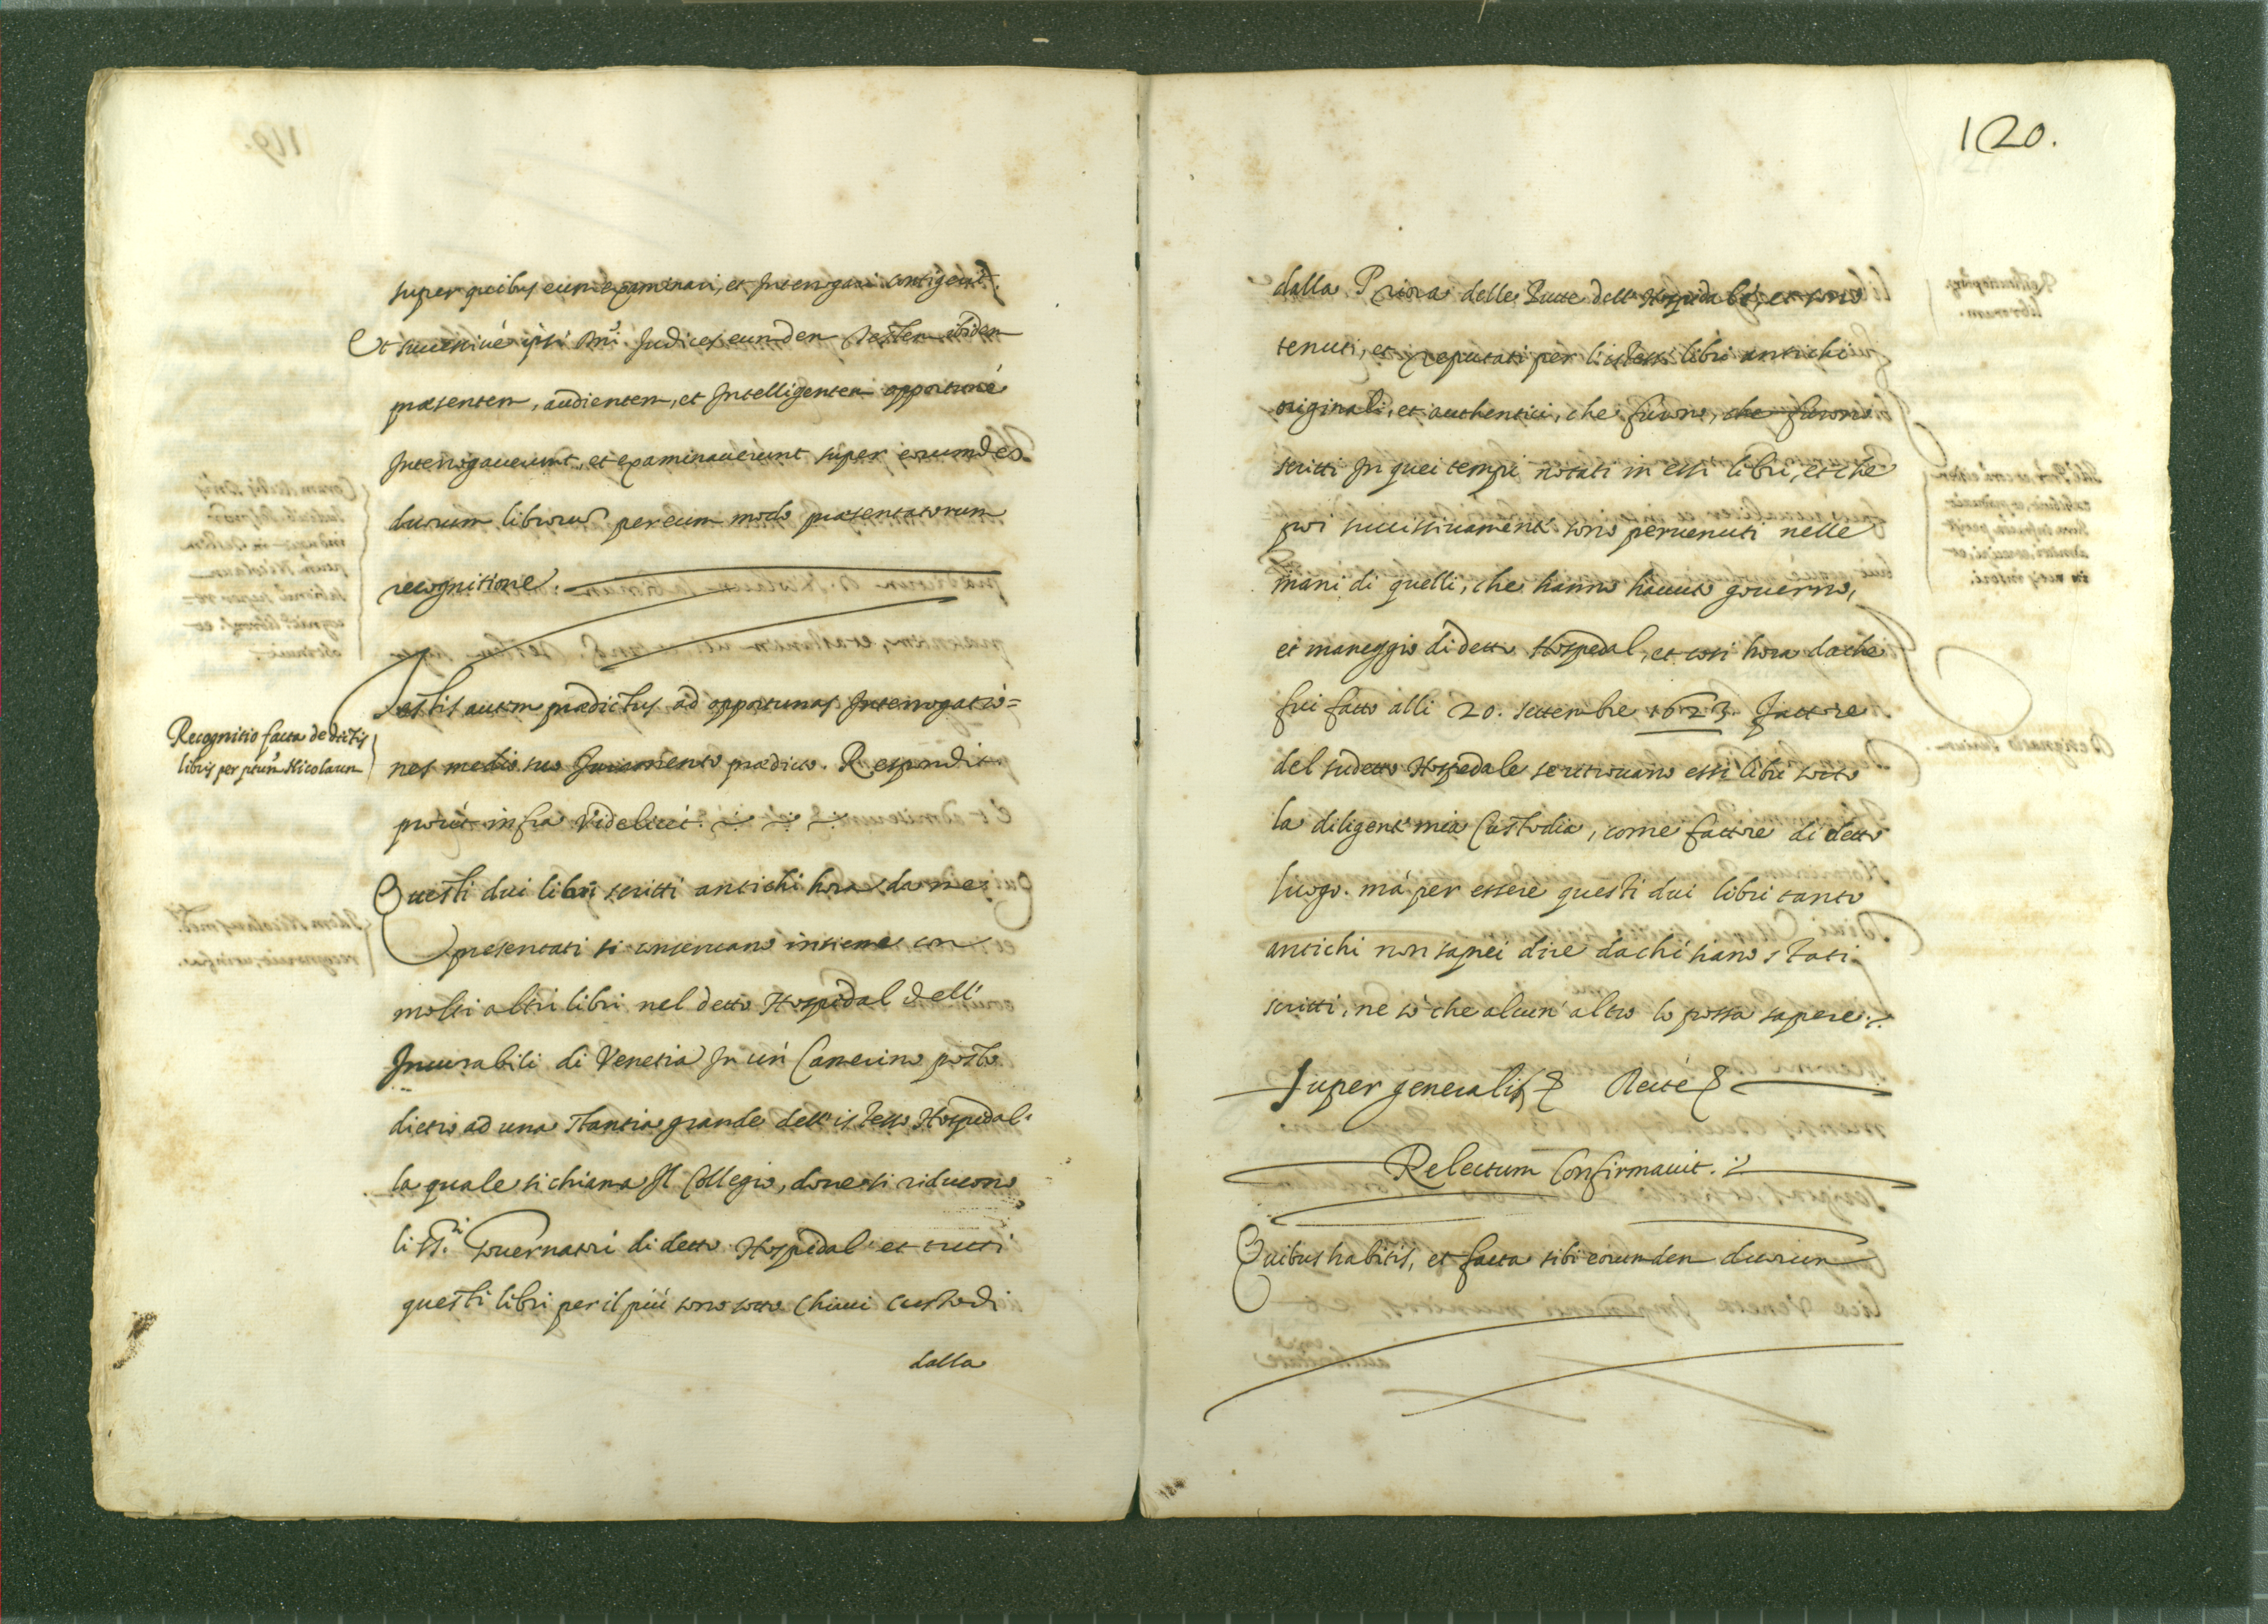 super quibus eum examinari, et Interrogari contigerit.
Et successiuè ipsi Dni Judices eundem Testem ibidem
praesentem, audientem, et Intelligentem opportunè
Interrogauerunt, et examinauerunt super eorumdem
duorum librorum per eum modo praesentatorum
recognitione.
Testis autem praedictus ad opportunas Interrogatio=
nes medio suo Juramento praedicto. Respondit
prout infra Videlicet.
Recognitio facta de dictis
libris per ptum Nicolaum
Questi dui libri scritti antichi hora da me
presentati si conseruano insieme con
molti altri libri nel detto Hospidal dell'
Incurabili di Venetia In un Camerino posto
dietro ad una Stantia grande dell'istesso Hospedal
la quale si chiama Il Collegio, doue si riducono
li SS.ri Gouernatori di detto Hospidal et tutti
questi libri per il più sono sotto Chiaui custodi
dalla
120.
dalla Priora delle Putte dell' Hospidal, et sono
tenuti, et reputati per l'istessi libri antichi
originali, et authentici, che furono, che furono
scritti In quei tempi notati in essi libri, et che
poi successiuament' sono peruenuti nelle
mani di quelli, che hanno hauuto gouerno,
et maneggio di detto Hospedal, et così hora da che
fui fatto alli 20. settembre 1623. Fattore
del sudetto Hospedale se ritrouano essi libri sotto
la diligent' mia Custodia, come fattore di detto
luogo. mà per essere questi dui libri tanto
antichi non saprei dire da chi siano stati
scritti, ne sò che alcun' altro lo possa sapere.
Super generalis Recte
Relectum Confirmauit.
Quibus habitis, et facta sibi eorumdem duorum